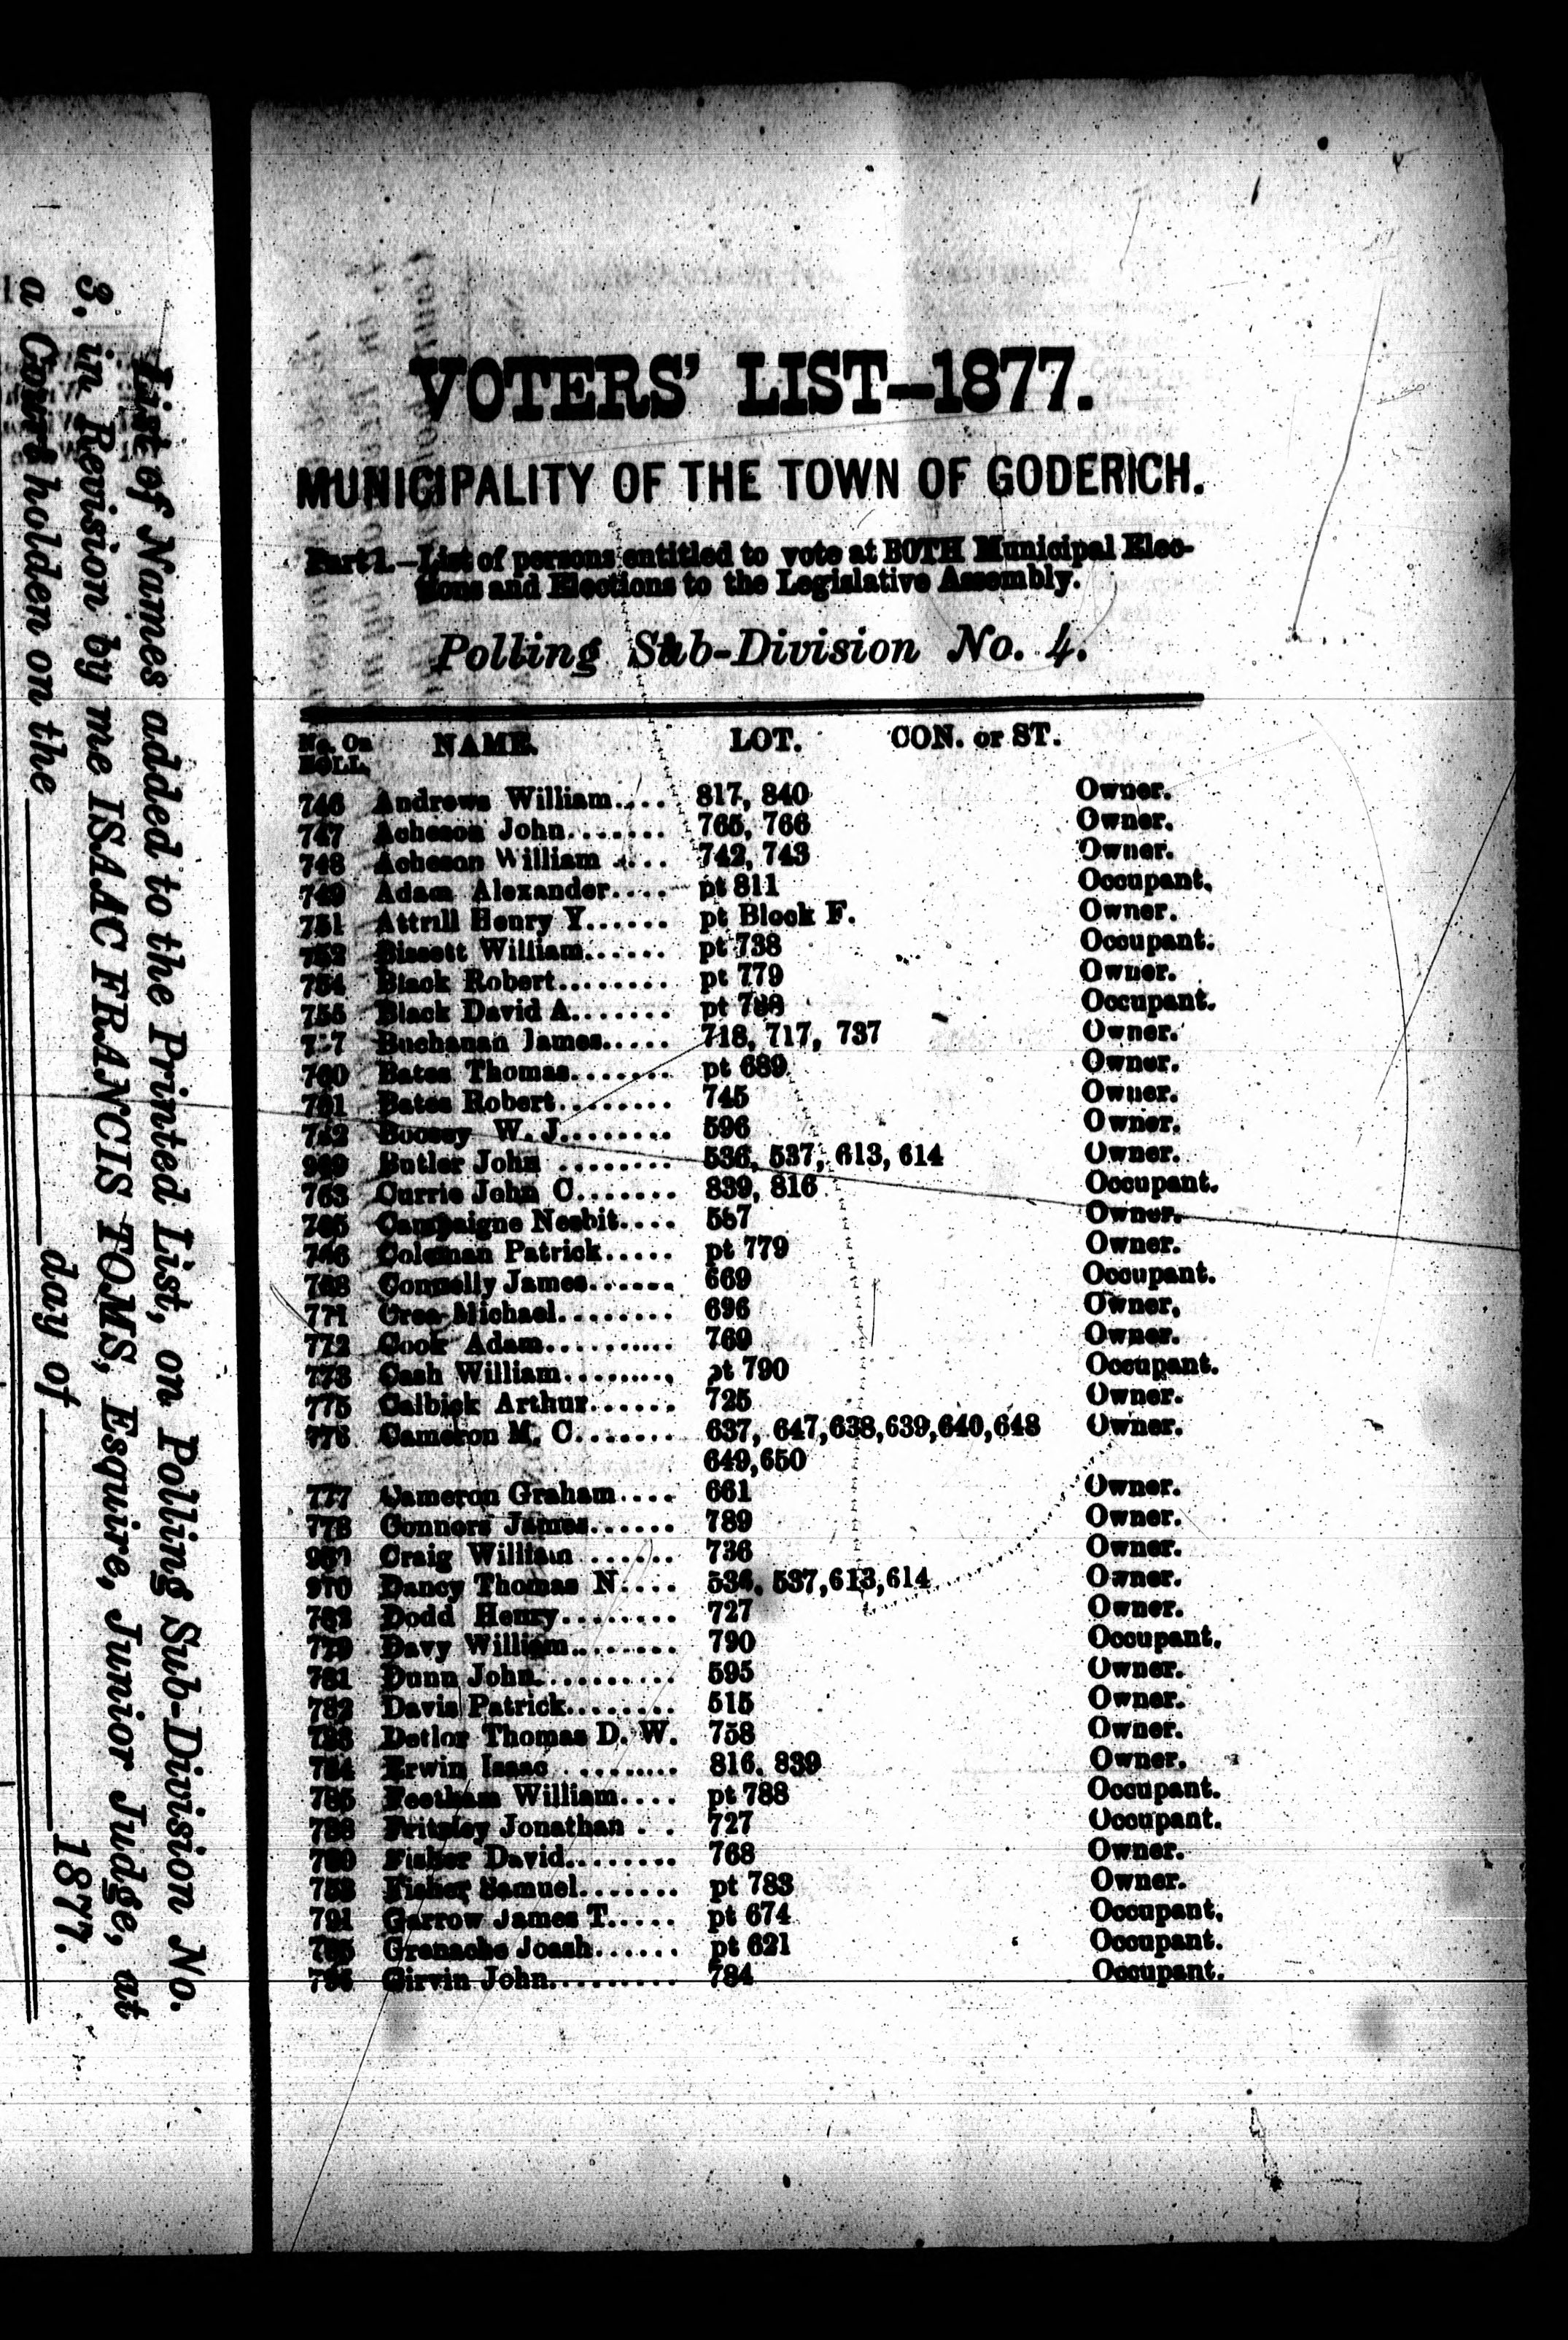 List of Names added to the Printed List, on Polling Sub-Division No.
3, in Revision by me ISAAC FRANCIS TOMS, Esquire, Junior Judge, at
a Court holden on the day of 1877.
VOTERS' LIST–1877.
MUNICIPALITY OF THE TOWN OF GODERICH.
Part 1.—List of persons entitled to vote at BOTH Municipal Elec-
tions and Elections to the Legislative Assembly.
Polling Sub-Division No. 4.
No. On ROLL. NAME. LOT. CON. or ST.
746 Andrews William.... 817, 840 Owner.
747 Acheson John....... 765, 766 Owner.
748 Acheson William .... 742, 743 Owner.
749 Adam Alexander.... pt 811 Occupant.
751 Attrill Henry Y...... pt Block F. Owner.
752 Bissett William...... pt 738 Occupant.
754 Black Robert........ pt 779 Owner.
755 Black David A....... pt Occupant.
Buchanan James..... 718, 717, 737 Owner.
760 Bates Thomas....... pt 689 Owner.
761 Bates Robert........ 745 Owner.
Boosey W. J........ 596 Owner.
969 Butler John ........ 536, 537, 613, 614 Owner.
763 Currie John C....... 839, 816 Occupant.
765 Campaigne Nesbit.... 587 Owner.
Coleman Patrick..... pt 779 Owner.
768 Connelly James....... 669 Occupant.
771 Cree Michael........ 696 Owner.
772 Cook Adam.......... 769 Owner.
773 Cash William......... pt 790 Occupant.
775 Calbick Arthur...... 725 Owner.
776 Cameron M. C....... 637, 647,638,639,640,648 Owner.
649,650
777 Cameron Graham.... 661 Owner.
778 Connors James...... 789 Owner.
Craig William ...... 736 Owner.
970 Dancy Thomas N.... 536, 537,613,614 Owner.
Dodd Henry........ 727 Owner.
779 Davy William........ 790 Occupant.
781 Dunn John.......... 595 Owner.
782 Davis Patrick........ 515 Owner.
783 Detlor Thomas D. W. 758 Owner.
784 Erwin Isaac ......... 816, 839 Owner.
785 Feetham William.... pt 788 Occupant.
788 Fritzley Jonathan . . 727 Occupant.
Fisher David........ 768 Owner.
Fisher Samuel....... pt 783 Owner.
791 Garrow James T..... pt 674 Occupant.
795 Grenache Joash...... pt 621 Occupant.
Girvin John......... 784 Occupant.